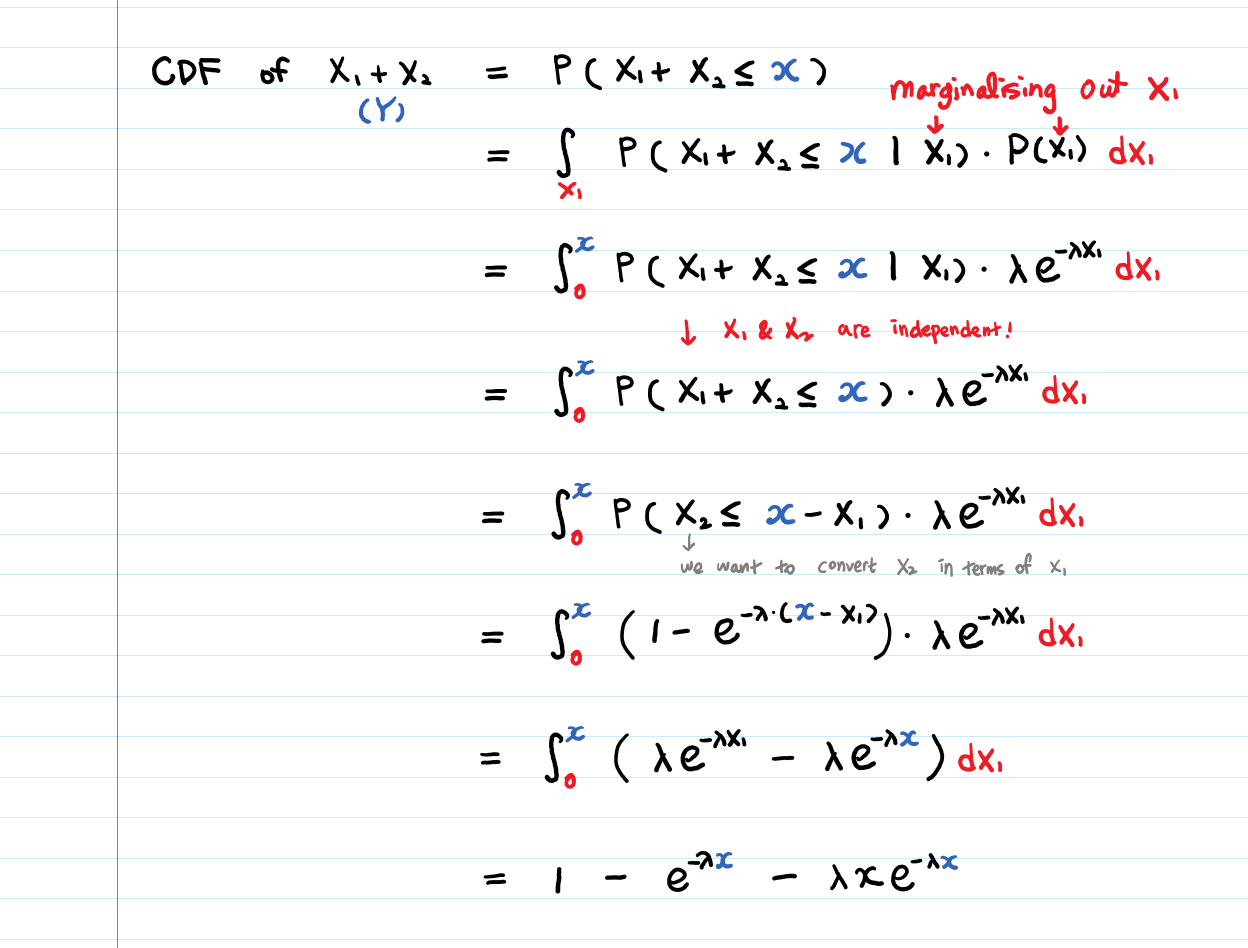 CDF of X₁ + X₂ = P( X₁ + X₂ ≤ x )
(Y)
marginalising out X₁
↓ ↓
= ∫_{X₁} P( X₁ + X₂ ≤ x | X₁) · P(X₁) dX₁
= ∫₀ˣ P( X₁ + X₂ ≤ x | X₁) · λe^{-λX₁} dX₁
↓ X₁ & X₂ are independent!
= ∫₀ˣ P( X₁ + X₂ ≤ x ) · λe^{-λX₁} dX₁
= ∫₀ˣ P( X₂ ≤ x - X₁ ) · λe^{-λX₁} dX₁
↓
we want to convert X₂ in terms of X₁
= ∫₀ˣ (1 - e^{-λ·(x - X₁)}) · λe^{-λX₁} dX₁
= ∫₀ˣ ( λe^{-λX₁} - λe^{-λx} ) dX₁
= 1 - e^{-λx} - λxe^{-λx}